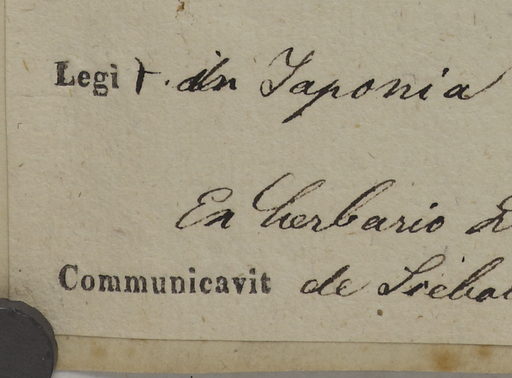 Legit. in Japonia
Ex herbario D
Communicavit de Siebol